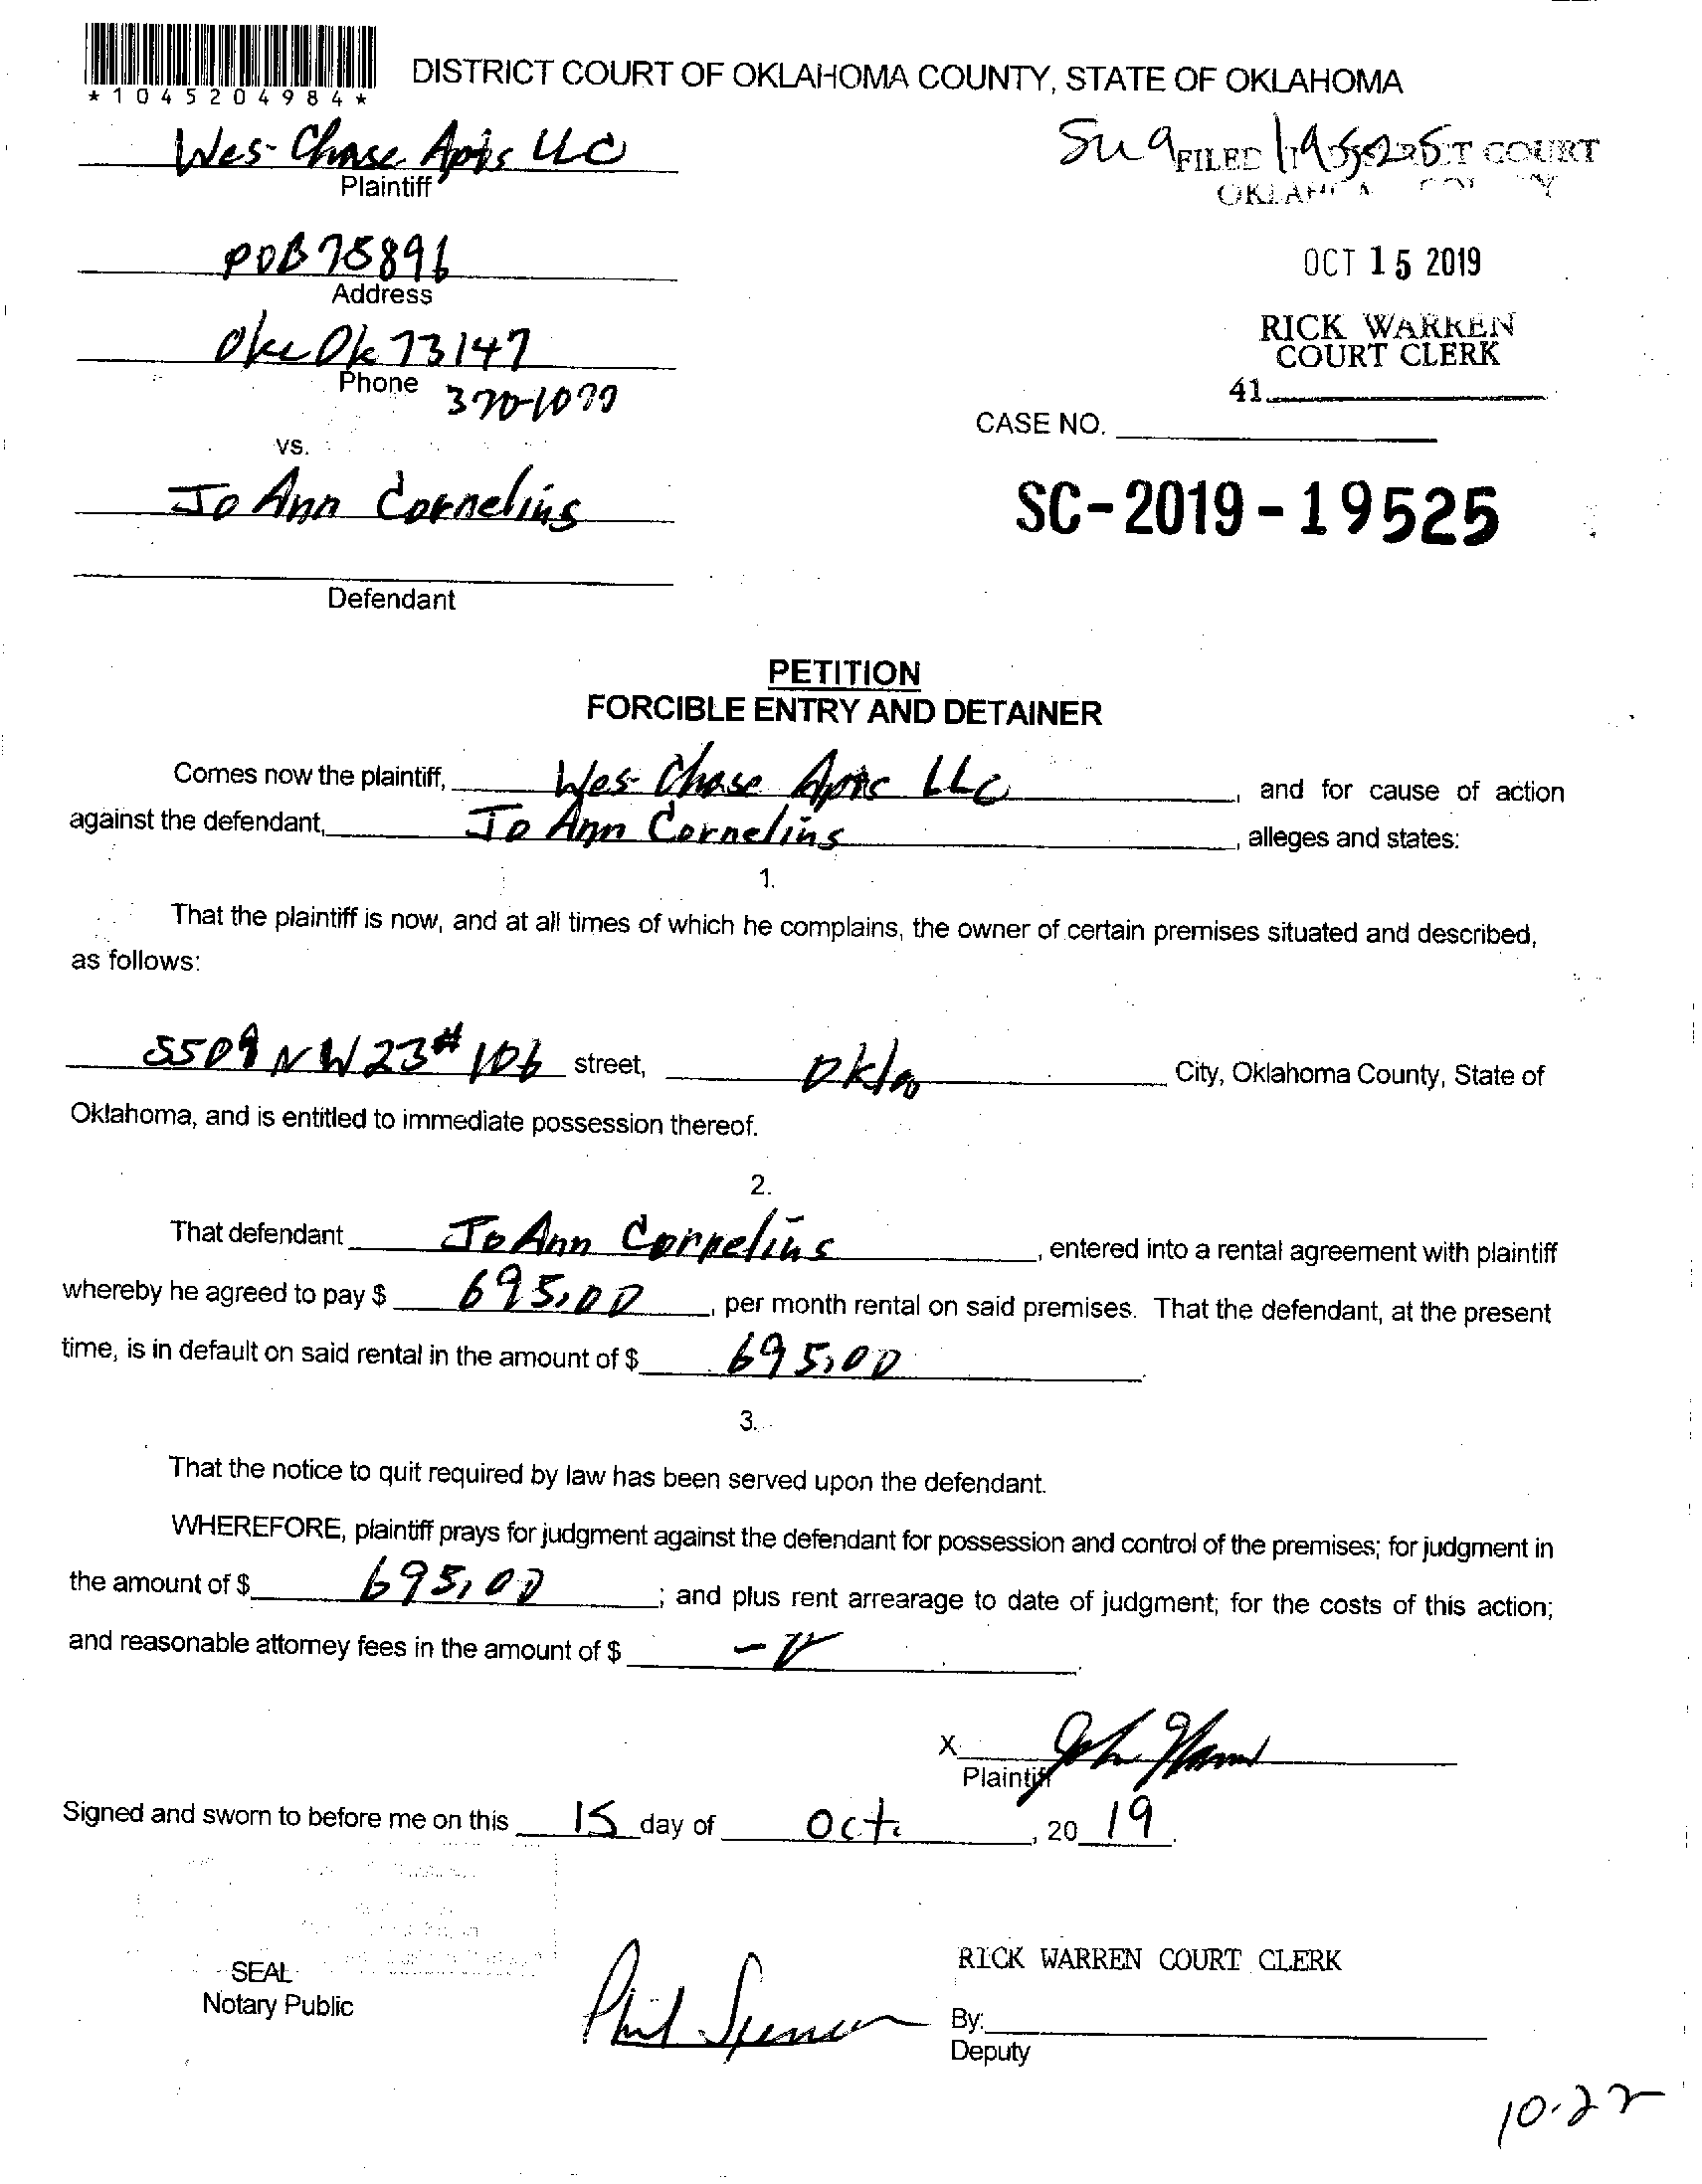 *1045204984*
DISTRICT COURT OF OKLAHOMA COUNTY, STATE OF OKLAHOMA
Wes-Chase Apts LLC
Plaintiff
FILED COURT
POB 75896
Address
OCT 15 2019
RICK WARREN
COURT CLERK
Okc Ok 73147
Phone
370-1077
41
CASE NO.
vs.
Jo Ann Cornelius
SC-2019-19525
Defendant
PETITION
FORCIBLE ENTRY AND DETAINER
Comes now the plaintiff, Wes-Chase Apts LLC, and for cause of action
against the defendant, Jo Ann Cornelius, alleges and states:
1.
That the plaintiff is now, and at all times of which he complains, the owner of certain premises situated and described,
as follows:
5509 NW 23 # 106 street, Okla City, Oklahoma County, State of
Oklahoma, and is entitled to immediate possession thereof.
2.
That defendant Jo Ann Cornelius, entered into a rental agreement with plaintiff
whereby he agreed to pay $ 695.00, per month rental on said premises. That the defendant, at the present
time, is in default on said rental in the amount of $ 695.00.
3.
That the notice to quit required by law has been served upon the defendant.
WHEREFORE, plaintiff prays for judgment against the defendant for possession and control of the premises; for judgment in
the amount of $ 695.00; and plus rent arrearage to date of judgment; for the costs of this action;
and reasonable attorney fees in the amount of $
X
Plaintiff
Signed and sworn to before me on this 15 day of Oct., 20 19.
SEAL
Notary Public
RICK WARREN COURT CLERK
Phil Spencer
By:
Deputy
10-22